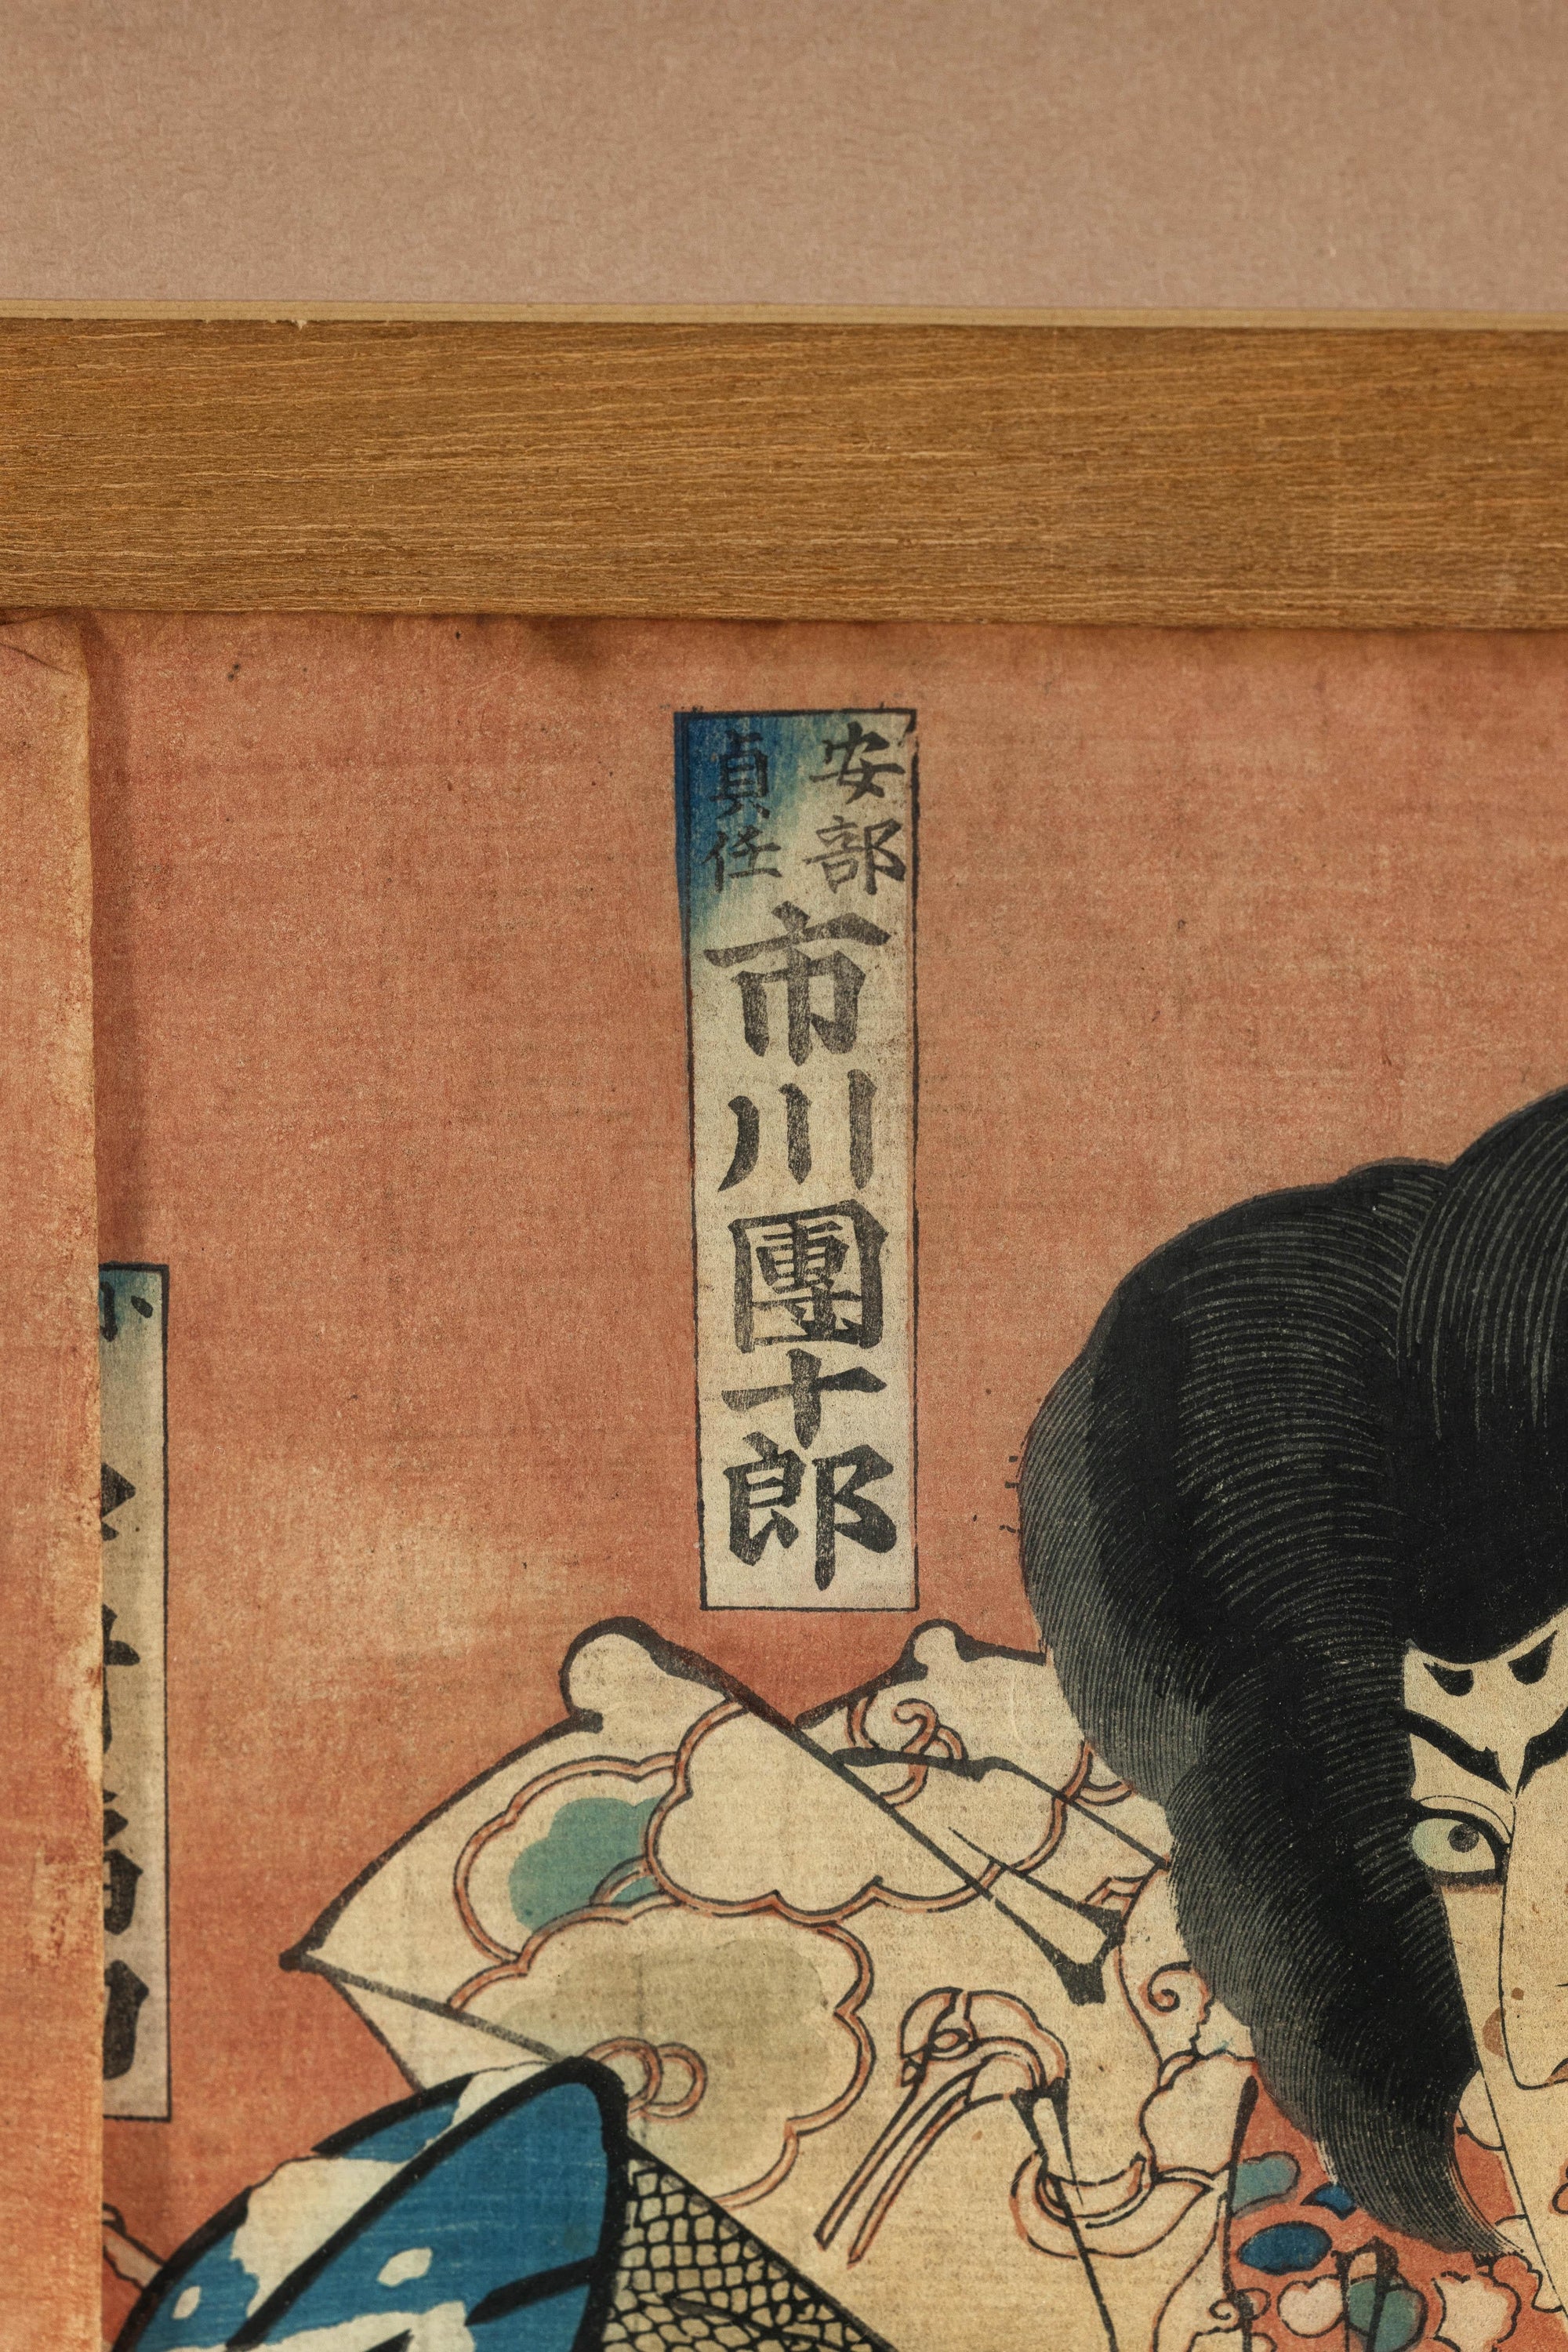 安部
貞任
市川團十郎
小